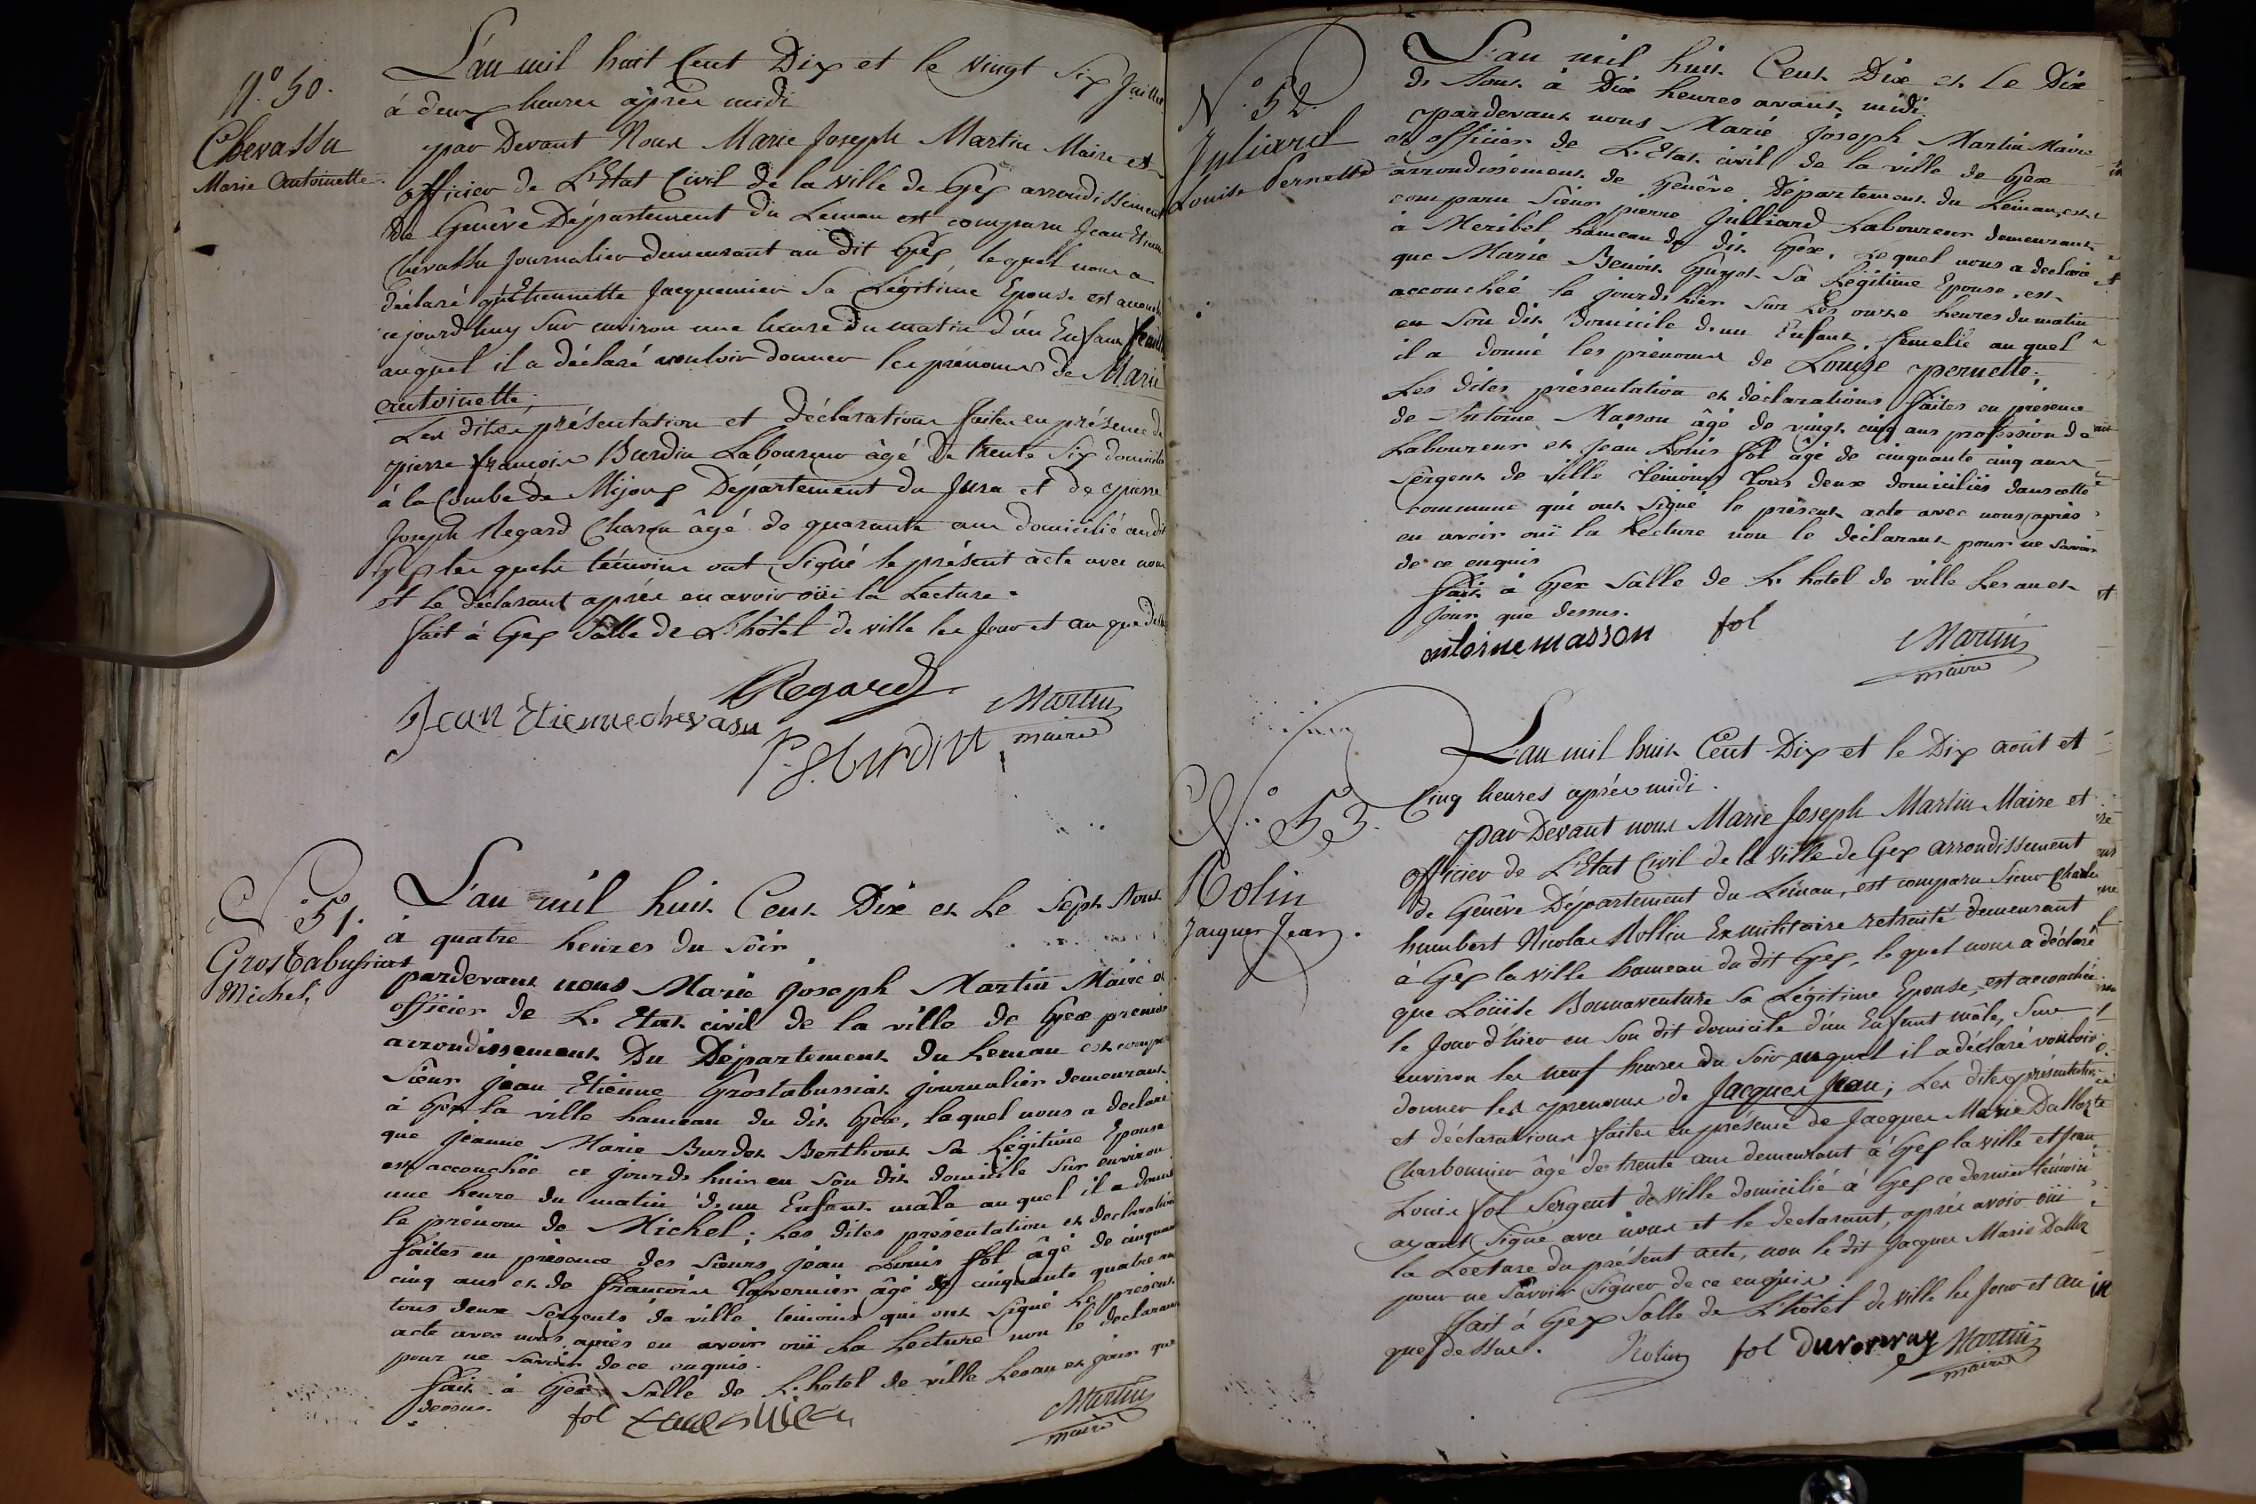 N.° 50.
Chevassu
Marie Antoinette.
L'an mil huit Cent Dix et le vingt Six Juillet
à deux heures après midi
par Devant Nous Marie Joseph Martin Maire et
officier de L'Etat Civil de la ville de Gex arrondissement
de Genêve Département du Léman est comparu Jean Etienne
Chevassu Journalier demeurant au dit Gex, lequel nous a
déclaré qu'Etiennette Jacquemier Sa Légitime Epouse est accouchée
cejourd'huy Sur environ une heure du matin d'un Enfant femelle
auquel il a déclaré vouloir donner les prénoms de Marie
antoinette;
Les dites présentation et déclaration faites en présence de
pierre françois Burdin Laboureur âgé de trente Six domicilié
à la Combe de Mijoux Département du Jura et de pierre
Joseph Regard Charon âgé de quarante ans domicilié au dit
Gex les quels témoins ont Signé le présent acte avec nous
et le déclarant après en avoir oüi la Lecture.
fait à Gex Salle de L'hôtel de ville les Jour et an que dessus
Regard
Jean Etienne chevasu
Martin
maire
P. f. burdin
N.° 51.
Gros tabussiat
Michel,
L'an mil huit Cent Dix et Le Sept Aout
à quatre heures du Soir
pardevant nous Marie joseph Martin Maire et
officier de L'Etat civil de la ville de Gex premier
arrondissement Du Département du Leman est comparu
Sieur jean Etienne Grostabussiat journalier demeurant
à Gex la ville hameau du dit Gex, lequel nous a declaré
que jeanne Marie Burdet Benthout Sa Légitime Epouse
est accouchée ce jourd'huis en Son dit domicile Sur environ
une heure du matin d'un Enfant male au quel il a donné
le prénom de Michel; Les dites présentation et declaration
faites en présence des Sieurs jean Louis fol âgé de cinquante
cinq ans et de françois Tavernier âgé de cinquante quatre ans
tous deux Sergents de ville temoins qui ont Signé Le présent
acte avec nous après en avoir oüi La Lecture non le declarant
pour ne Savoir de ce enquis.
fait à Gex Salle de L'hotel de ville Les an et jour que
dessus.
fol
Martin
maire
N.° 52.
Juliard
Louise Pernette
L'an mil huit Cent Dix et Le Dix
d'Aout à Dix heures avant midi.
pardevant nous Marie Joseph Martin Maire
et officier de L'Etat civil de la ville de Gex
arrondissement de Genêve Département du Léman, est
comparu Sieur pierre Julliard Laboureur demeurant
à Meribel hameau du dit Gex, Lequel nous a declaré
que Marie Benoit Guyot Sa Légitime Epouse, est
accouchée le jourd'hier Sur Les onze heures du matin
en Son dit Domicile d'un Enfant femelle au quel
il a donné les prénoms de Louise pernette;
Les dites présentation et déclarations faites en présence
de Antoine Masson âgé de vingt cinq ans profession de
Laboureur et jean Louis fol âgé de cinquante cinq ans
Sergent de ville témoins Tous deux domiciliés dans cette
commune qui ont Signé le présent acte avec nous après
en avoir oüi la Lecture non le déclarant pour ne Savoir
de ce enquis
fait à Gex Salle de L'hotel de ville Les an et
Jour que dessus.
antoine masson
fol
Martin
maire
N.° 53.
Rolin
Jacques Jean.
L'an mil huit Cent Dix et le Dix août et
Cinq heures après midi.
par Devant nous Marie Joseph Martin Maire et
officier de L'Etat Civil de la ville de Gex arrondissement
de Genêve Département du Léman, est comparu Sieur Charle
humbert Nicolas Rollin Ex militaire retraité demeurant
à Gex la ville hameau du dit Gex, lequel nous a déclaré
que Loüise Bonnaventure Sa Légitime Epouse, est accouchée
le Jour d'hier en Son dit domicile d'un Enfant mâle, Sur
environ les neuf heures du Soir auquel il a déclaré vouloir
donner les prenoms de Jacques Jean; Les dites présentation
et déclarations faites en présence de Jacques Marie Dalloz
Charbonnier âgé de trente ans demeurant à Gex la ville et Jean
Louis fol Sergent de ville domicilié à Gex ce dernier témoin
ayant Signé avec nous et le declarant, après avoir oüi
la Lecture du présent acte, non le dit Jacques Marie Dalloz
pour ne Savoir Signer de ce enquis
fait à Gex Salle de L'hôtel de ville les Jour et an
que dessus.
Rolin
fol
Duvernay
Martin
maire